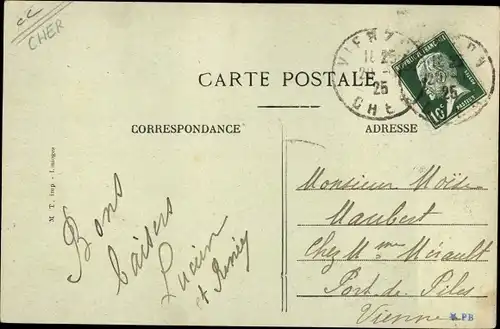 cc
CHER
VIERZON
18 25
25
CHER
REPUBLIQUE FRANÇAISE
10c
POSTES
CARTE POSTALE
CORRESPONDANCE
ADRESSE
M. T. Imp - Limoges
Bons
baisers
Lucien
et Renée
Monsieur Moïse
Maubert
Chez Mme Mérault
Port de Piles
Vienne
PB